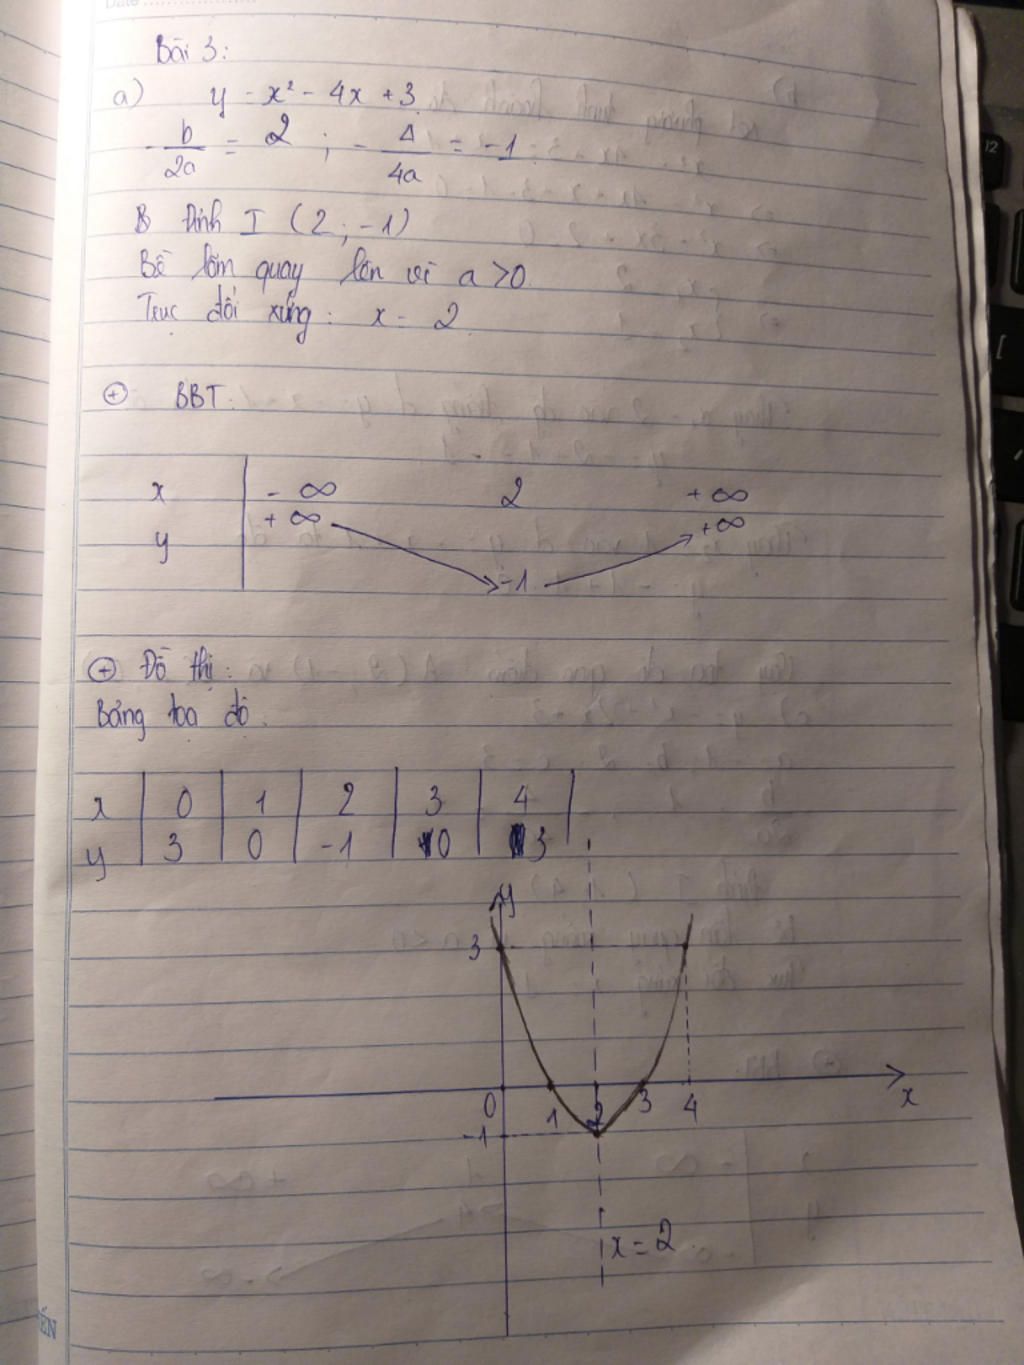 Date
Bài 3:
a) y = x² - 4x + 3
- b/2a = 2 ; - Δ/4a = -1
Đỉnh I (2 ; -1)
Bề lõm quay lên vì a > 0
Trục đối xứng: x = 2
⊕ BBT:
x - ∞ 2 + ∞
y + ∞ -1 +∞
⊕ Đồ thị:
Bảng toạ độ.
x 0 1 2 3 4
y 3 0 -1 0 3
y
3
0 1 2 3 4 x
-1
x = 2